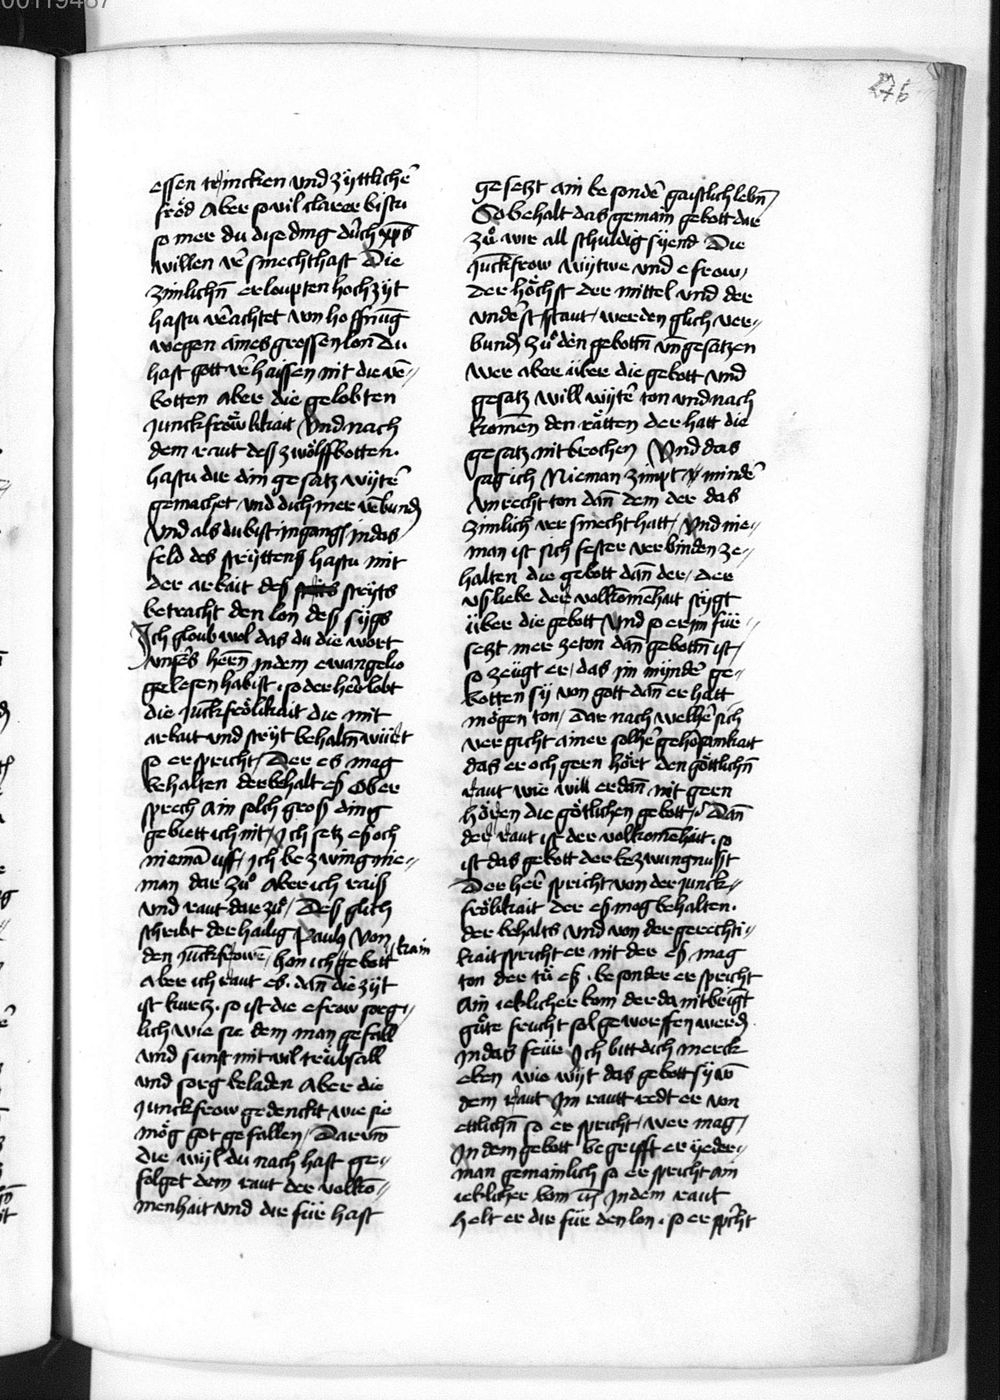 276
essen trincken vnd zyttlichē
fröd Aber so vil clarer bistu
so mer du dise ding durch xp̄s
willen v̄smechthast Die
zimlichn̄ erloupten hochzyt
hastu v̄achtet von hoffnūg
wegen aines grossen lon Du
hast gott v̄haissen nit die v̄-
botten aber die gelobten
Junckfröwlikait Vnd nach
dem raut deß zwölffbotten.
hastu die ain gesatz wytē
gemachet vnd dich mer v̄bundn̄
Vnd als du bist ingangn̄ in das
feld des stryttens hastu mit
der arbait deß stryts
betracht den lon deß sygs
Ich gloub wol das du die wort
vnsers herrn̄ in dem ewangelio
gelesen habist. so der her lobt
die Juckfrölikait die mit
arbait vnd stryt behaltn̄ würt
so er spricht / Der es mag
behalten der behalt eß Ober
sprech Ain solch groß ding
gebiett ich nit / Ich setz eß och
niemā uff / ich bezwing nie-
man dar zů Aber ich raiß
vnd raut dar zů / Deß glich
schribt der hailig Paulus Von
den Juckfrowē / hon ich kain gebott
Aber ich raut es. dan̄ die zyt
ist kurcz. so ist die efrow sorg-
lich wie sie dem man gefall
vnd sunst mit vil trübsall
vnd sorg beladen Aber die
Junckfrow gedenckt wie sie
mög got gefallen / Darum̄
die wyl du nach hast ge-
folget dem raut der volko-
menhait vnd dir für hast
gesetzt ain besondē gaistlich lebn̄
So behalt das gemain gebott dar
zů wir all schuldig syend Die
Juckfrow wytwe vnd efrow /
Der höchst der mittel vnd der
vnderst staut / werden glich ver-
bundn̄ zů den gebottn̄ vn̄ gesatzen
Wer aber über die gebott vnd
gesatz will wytē ton vnd nach
komen den rätten der hatt die
gesatz nit brochen Vnd das
sag ich Nieman zimpt mindē
vnrecht ton dan̄ dem der das
zimlich versmecht hatt / Vnd nie-
man ist sich fester verbinden ze-
halten die gebott dan̄ der / der
vß liebe der volkomēhait stygt
über die gebott Vnd so er im für-
setzt mer ze ton dan̄ gebottn̄ ist /
so zeügt er / das im myndē ge-
botten sy von gott dan̄ er hatt
mögen ton / Dar nach welhē sich
vergicht ainer solhē gehorsamkait
das er och gern hört den göttlichn̄
raut wie will er dan̄ nit gern
hören die göttlichen gebott / Dan̄
der raut ist der volkomēhait. so
ist das gebott der bezwingnußt
Der her spricht von der junck-
frölikait der eß mag behalten.
der behalts Vnd von der gerechti-
kait spricht er nit der eß mag
ton der tů eß. besonder er spricht
Ain ieklicher bom der da nit bringt
gůte frucht sol geworffen werdn̄
in das feür Ich bitt dich merck
eben wie wyt das gebott sy von
dem raut Im rautt redt er von
ettlichn̄ so er spricht / wer mag /
In dem gebott begrifft er yeder-
man gemainlich so er spricht ain
ieklicher bom In dem raut
helt er dir für den lon. so er spricht